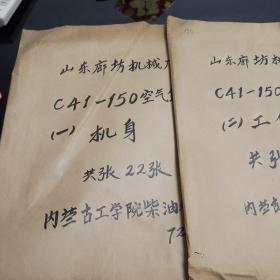 山东廊坊机械
C41-150空气
(一) 机身
共张 22张
内蒙古工学院柴油
72
山东廊坊机
C41-15
(二) 工
共张
内蒙古